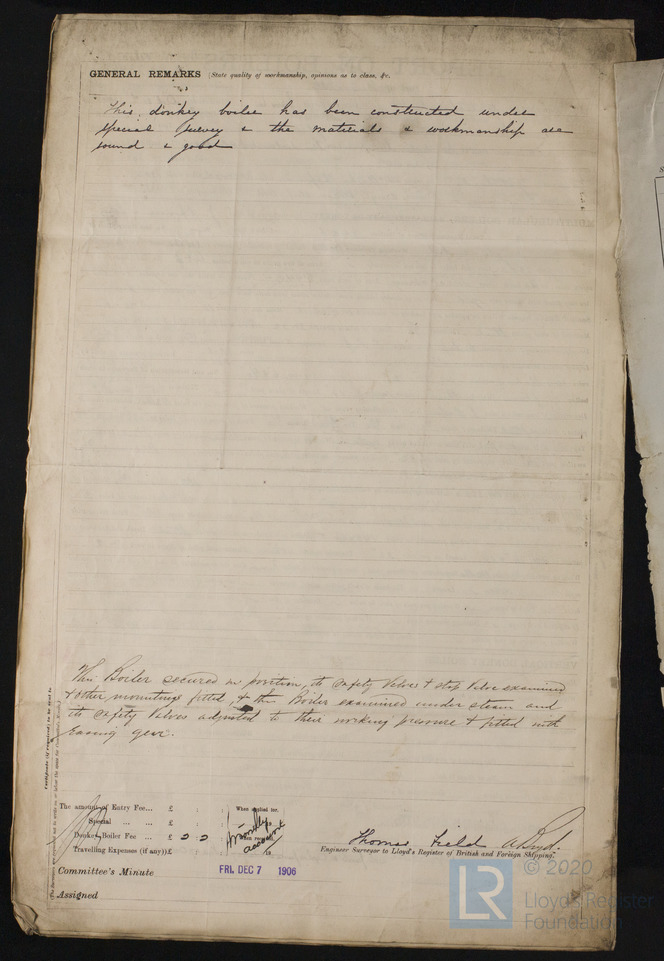 GENERAL REMARKS (State quality of workmanship, opinions as to class, &c.
This donkey boiler has been constructed under
special survey & the materials & workmanship are
sound & good
This Boiler secured in position, its safety Valves & stop Valve examined
& other mountings fitted, & this Boiler examined under steam and
its safety Valves adjusted to their working pressure & fitted with
easing gear.
The amount of Entry Fee... £ : :
Special ... ... £ : :
Donkey Boiler Fee ... £ 2 : 2 :
Travelling Expenses (if any) £ : :
When applied for,
Monthly
When received,
account
Thomas Field A. Boyd.
Engineer Surveyor to Lloyd's Register of British and Foreign Shipping.
Committee's Minute
FRI. DEC 7 1906
Assigned
Certificate (if required) to be sent to
LR
© 2020
Lloyd's Register
Foundation